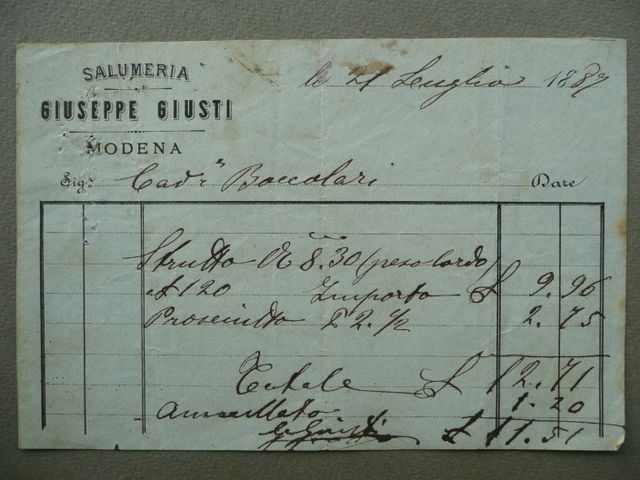 SALUMERIA
GIUSEPPE GIUSTI
MODENA
li 21 Luglio 1887
Sig.r Cad.r Boccolari Dare
Strutto K 8.30 (peso lordo)
a £ 120 Importo £ 9.96
Prosciutto £ 2. 1/2 2.75
Totale £ 12.71
1.20
G Giusti £ 11.51